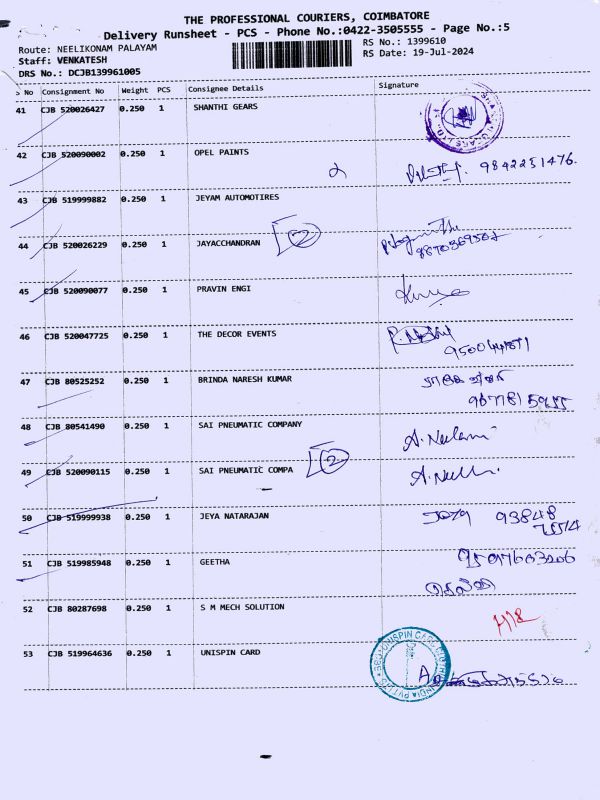 THE PROFESSIONAL COURIERS, COIMBATORE
Delivery Runsheet - PCS - Phone No.:0422-3505555 - Page No.:5
Route: NEELIKONAM PALAYAM
RS No.: 1399610
Staff: VENKATESH
RS Date: 19-Jul-2024
DRS No.: DCJB139961005
S No Consignment No Weight PCS Consignee Details Signature
41 CJB 520026427 0.250 1 SHANTHI GEARS
42 CJB 520090002 0.250 1 OPEL PAINTS 9842251476.
43 CJB 519999882 0.250 1 JEYAM AUTOMOTIRES
44 CJB 520026229 0.250 1 JAYACCHANDRAN 2
45 CJB 520090077 0.250 1 PRAVIN ENGI
46 CJB 520047725 0.250 1 THE DECOR EVENTS
47 CJB 80525252 0.250 1 BRINDA NARESH KUMAR
48 CJB 80541490 0.250 1 SAI PNEUMATIC COMPANY
49 CJB 520090115 0.250 1 SAI PNEUMATIC COMPA 2
50 CJB 519999938 0.250 1 JEYA NATARAJAN 93848
51 CJB 519985948 0.250 1 GEETHA
52 CJB 80287698 0.250 1 S M MECH SOLUTION
53 CJB 519964636 0.250 1 UNISPIN CARD